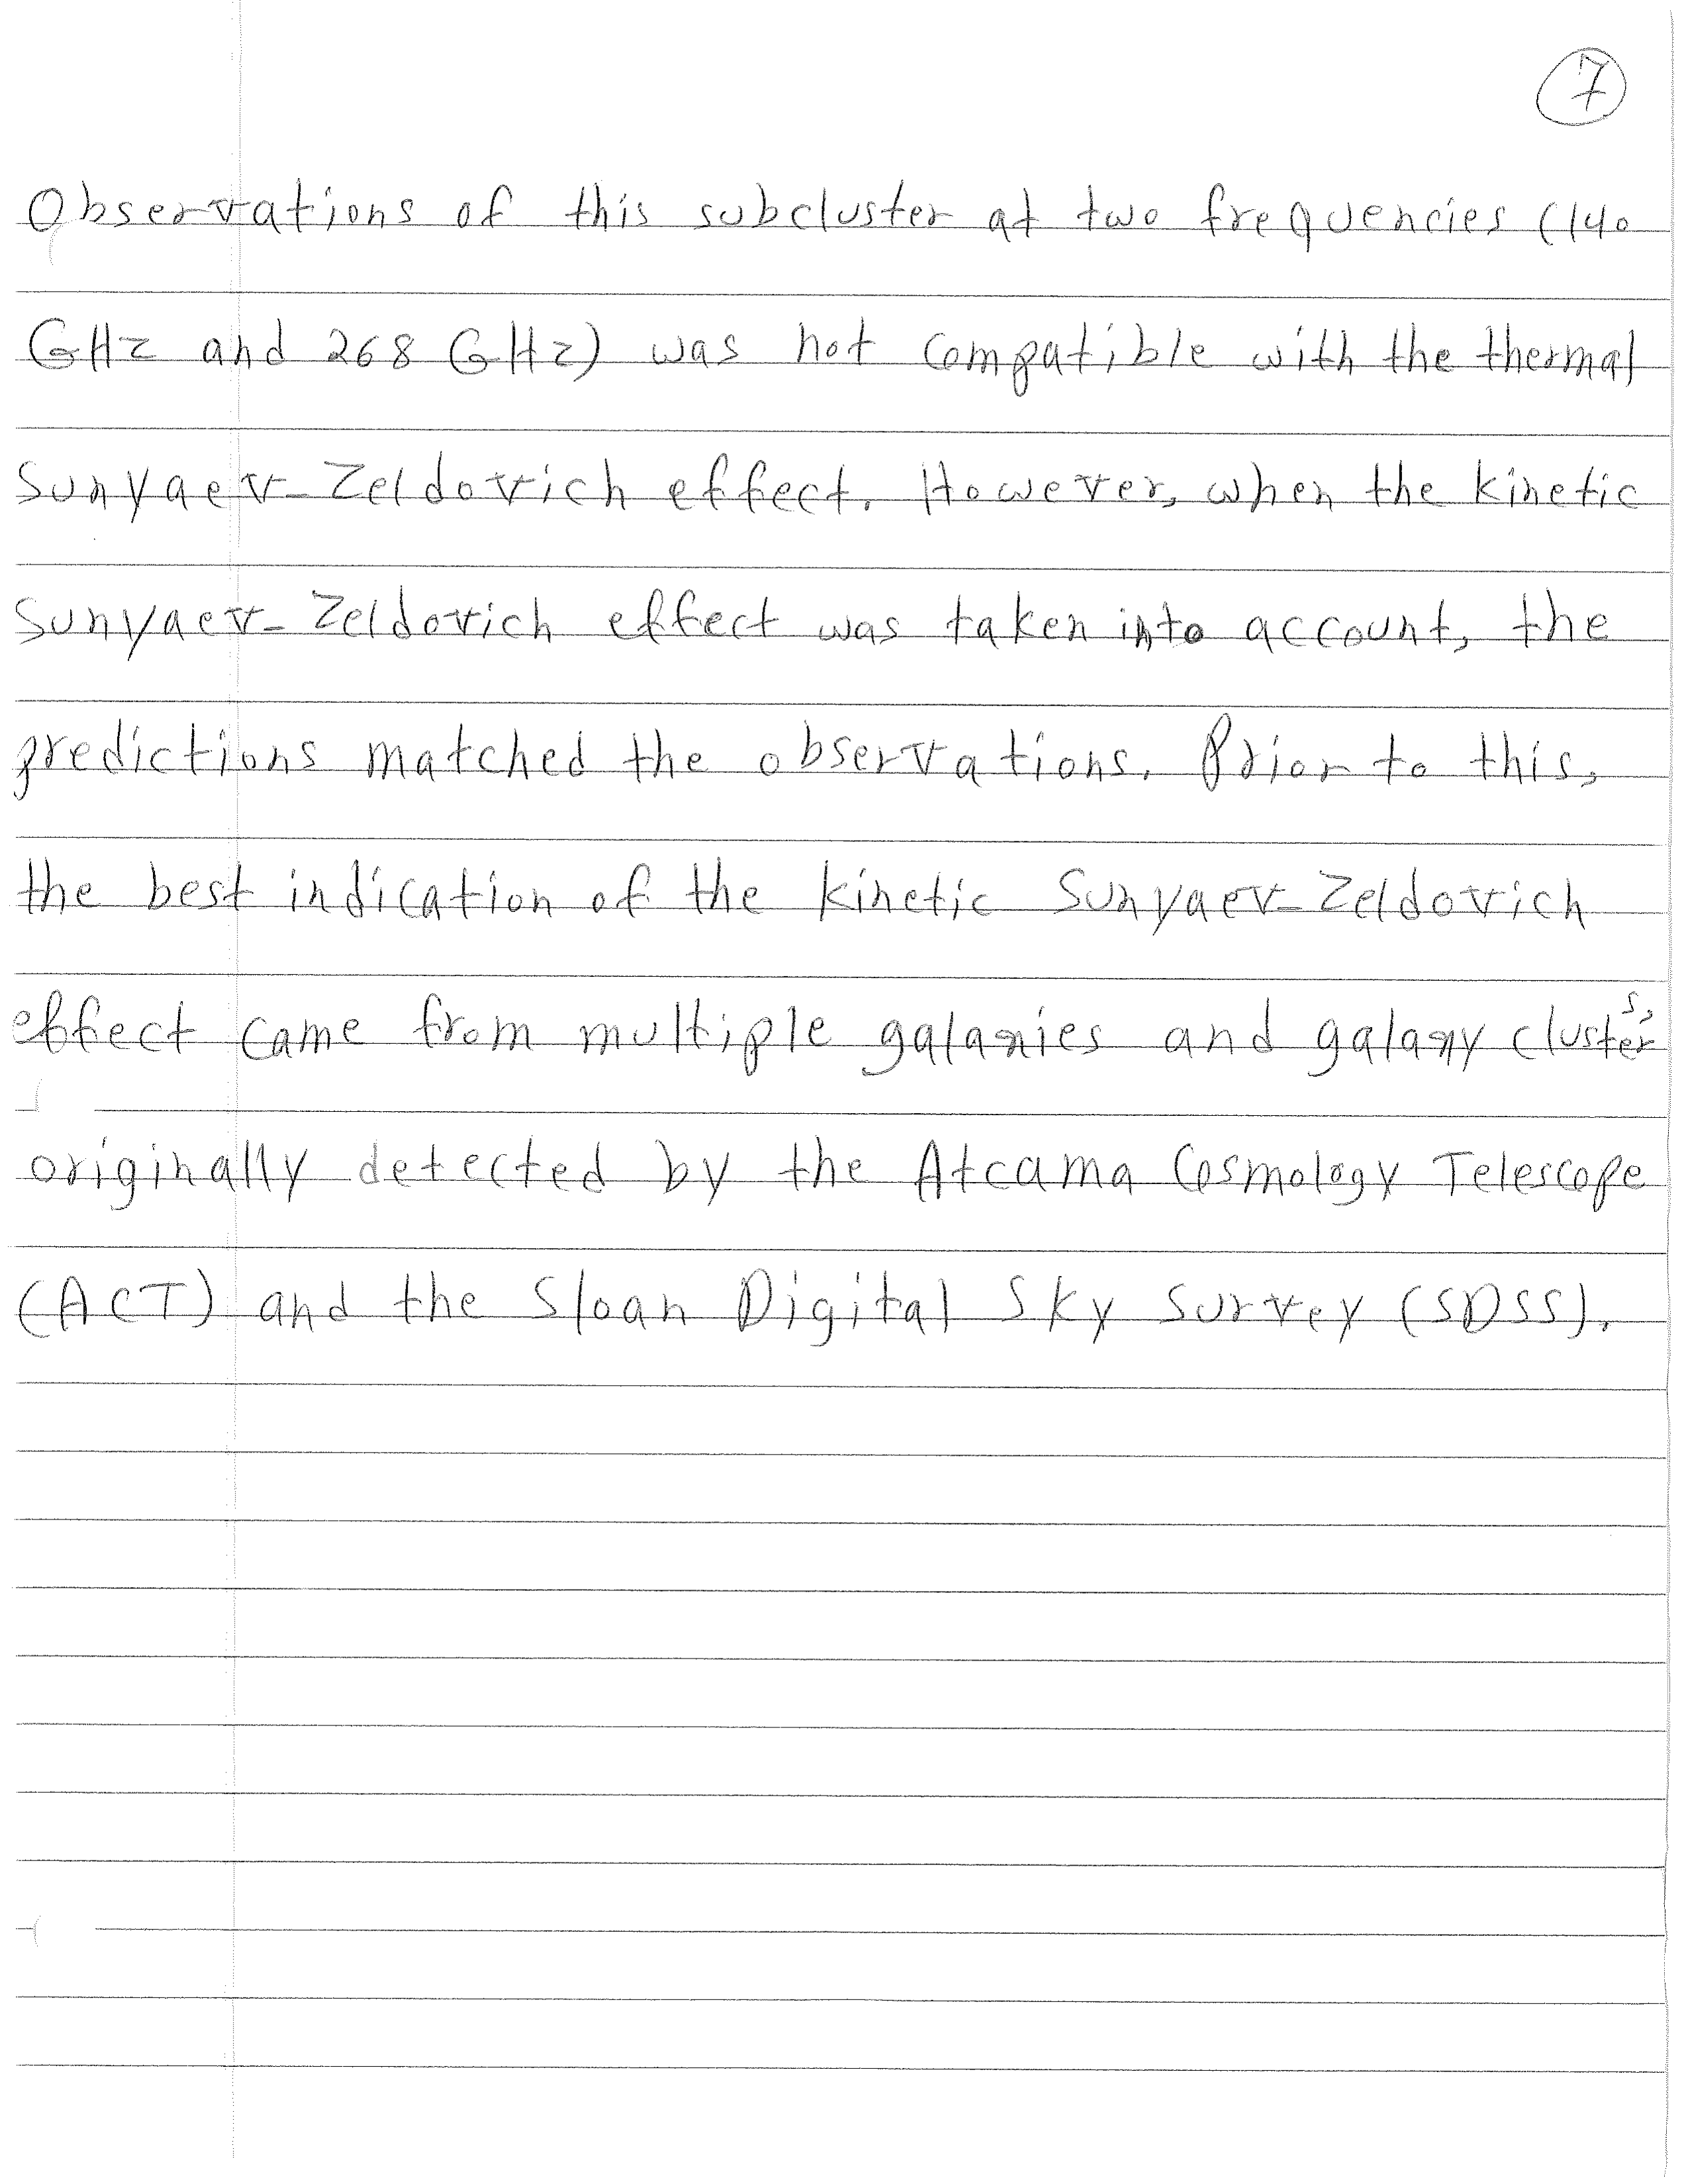 7
Observations of this subcluster at two frequencies (140
GHz and 268 GHz) was not compatible with the thermal
Sunyaev-Zeldovich effect. However, when the kinetic
Sunyaev-Zeldovich effect was taken into account, the
predictions matched the observations. Prior to this,
the best indication of the kinetic Sunyaev-Zeldovich
effect came from multiple galaxies and galaxy clusters,
originally detected by the Atcama Cosmology Telescope
(ACT) and the Sloan Digital Sky Survey (SDSS).